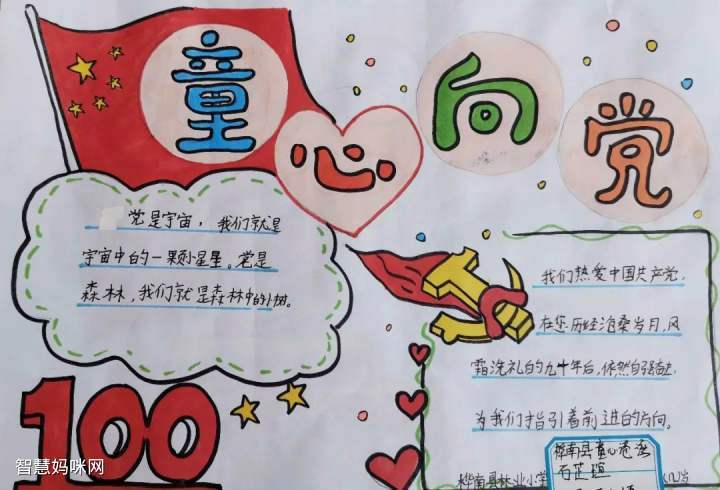 童心向党
党是宇宙，我们就是
宇宙中的一颗小星星。党是
森林，我们就是森林中的小树。
我们热爱中国共产党，
在您历经沧桑岁月，风
霜洗礼的九十年后，依然自强奋进
为我们指引着前进的方向。
桦南县林业小学
桦南县童心
100
智慧妈咪网